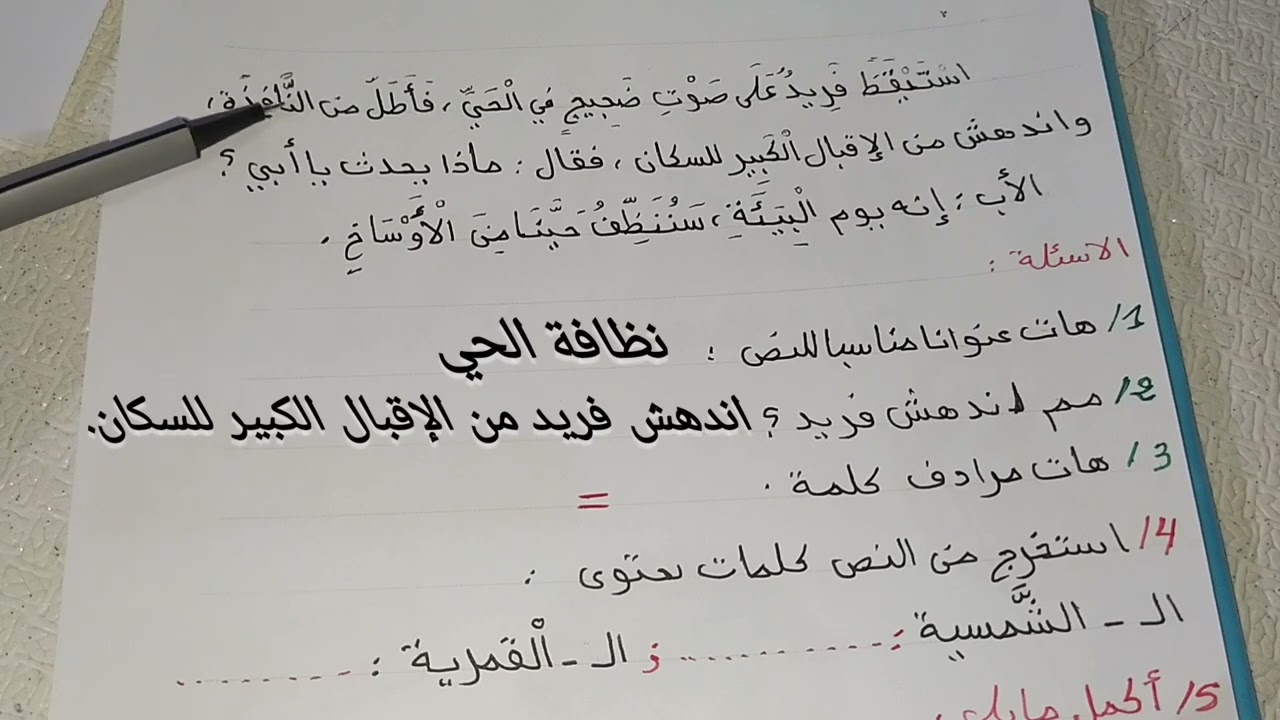 اسْتَيْقَظَ فَرِيدٌ عَلَى صَوْتِ ضَجِيجٍ فِي الْحَيِّ، فَأَطَلَّ من النَّافِذَةِ،
واندهش من الإقبال الْكَبِيرِ للسكان، فقال: ماذا يحدث يا أبي؟
الأب: إنه يوم الْبِيئَةِ، سَنُنَظِّفُ حَيَّنَا مِنَ الْأَوْسَاخِ.
الاسئلة:
1/ هات عنوانا مناسبا للنص: نظافة الحي
2/ مم اندهش فريد؟ اندهش فريد من الإقبال الكبير للسكان.
3/ هات مرادف كلمة. =
4/ استخرج من النص كلمات تحتوى:
الـ - الشَّمسية: ........... و الـ - الْقمرية: ...........
5/ أكمل مايلي: